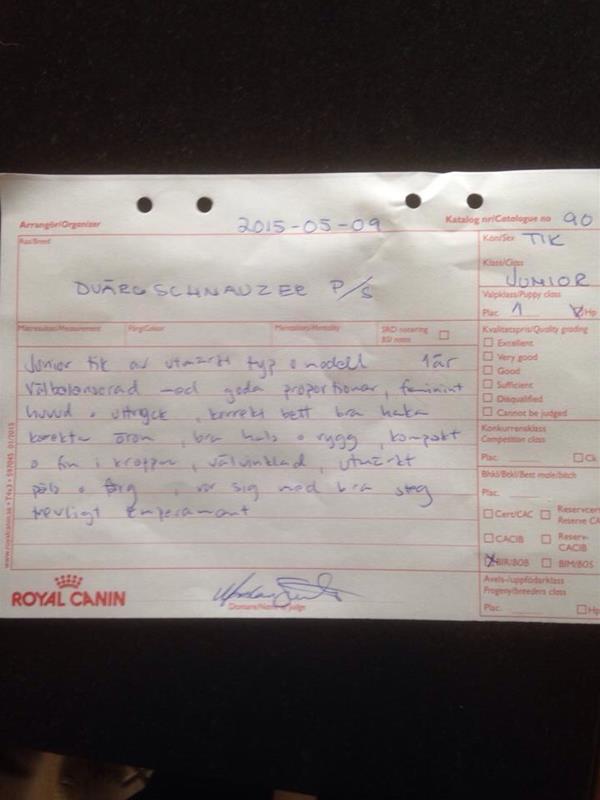 Arrangör/Organizer 2015-05-09 Katalog nr/Catalogue no 90
Ras/Breed
DVÄRGSCHNAUZER P/S
Kön/Sex TIK
Klass/Class
JUNIOR
Valpklass/Puppy class
Plac. 1 Hp
Mätresultat/Measurement Färg/Colour Mentalitet/Mentality SRD notering
BSI notes
Kvalitetspris/Quality grading
Excellent
Very good
Good
Sufficient
Disqualified
Cannot be judged
Konkurrensklass
Competition class
Plac. Ck
Bhkl/Btkl/Best male/bitch
Plac.
Cert/CAC Reservcert
Reserve CA
CACIB Reserv-
CACIB
BIR/BOB BIM/BOS
Avels-/uppfödarklass
Progeny/breeders class
Plac. Hp
Junior tik av utmärkt typ o modell 1 år
välbalanserad med goda proportioner, feminint
huvud o uttryck, korrekt bett bra haka
korekta öron, bra hals o rygg, kompakt
o fin i kroppen, välvinklad, utmärkt
päls o färg, rör sig med bra steg
trevligt temperament
www.royalcanin.se
ROYAL CANIN
Domare/Name of judge